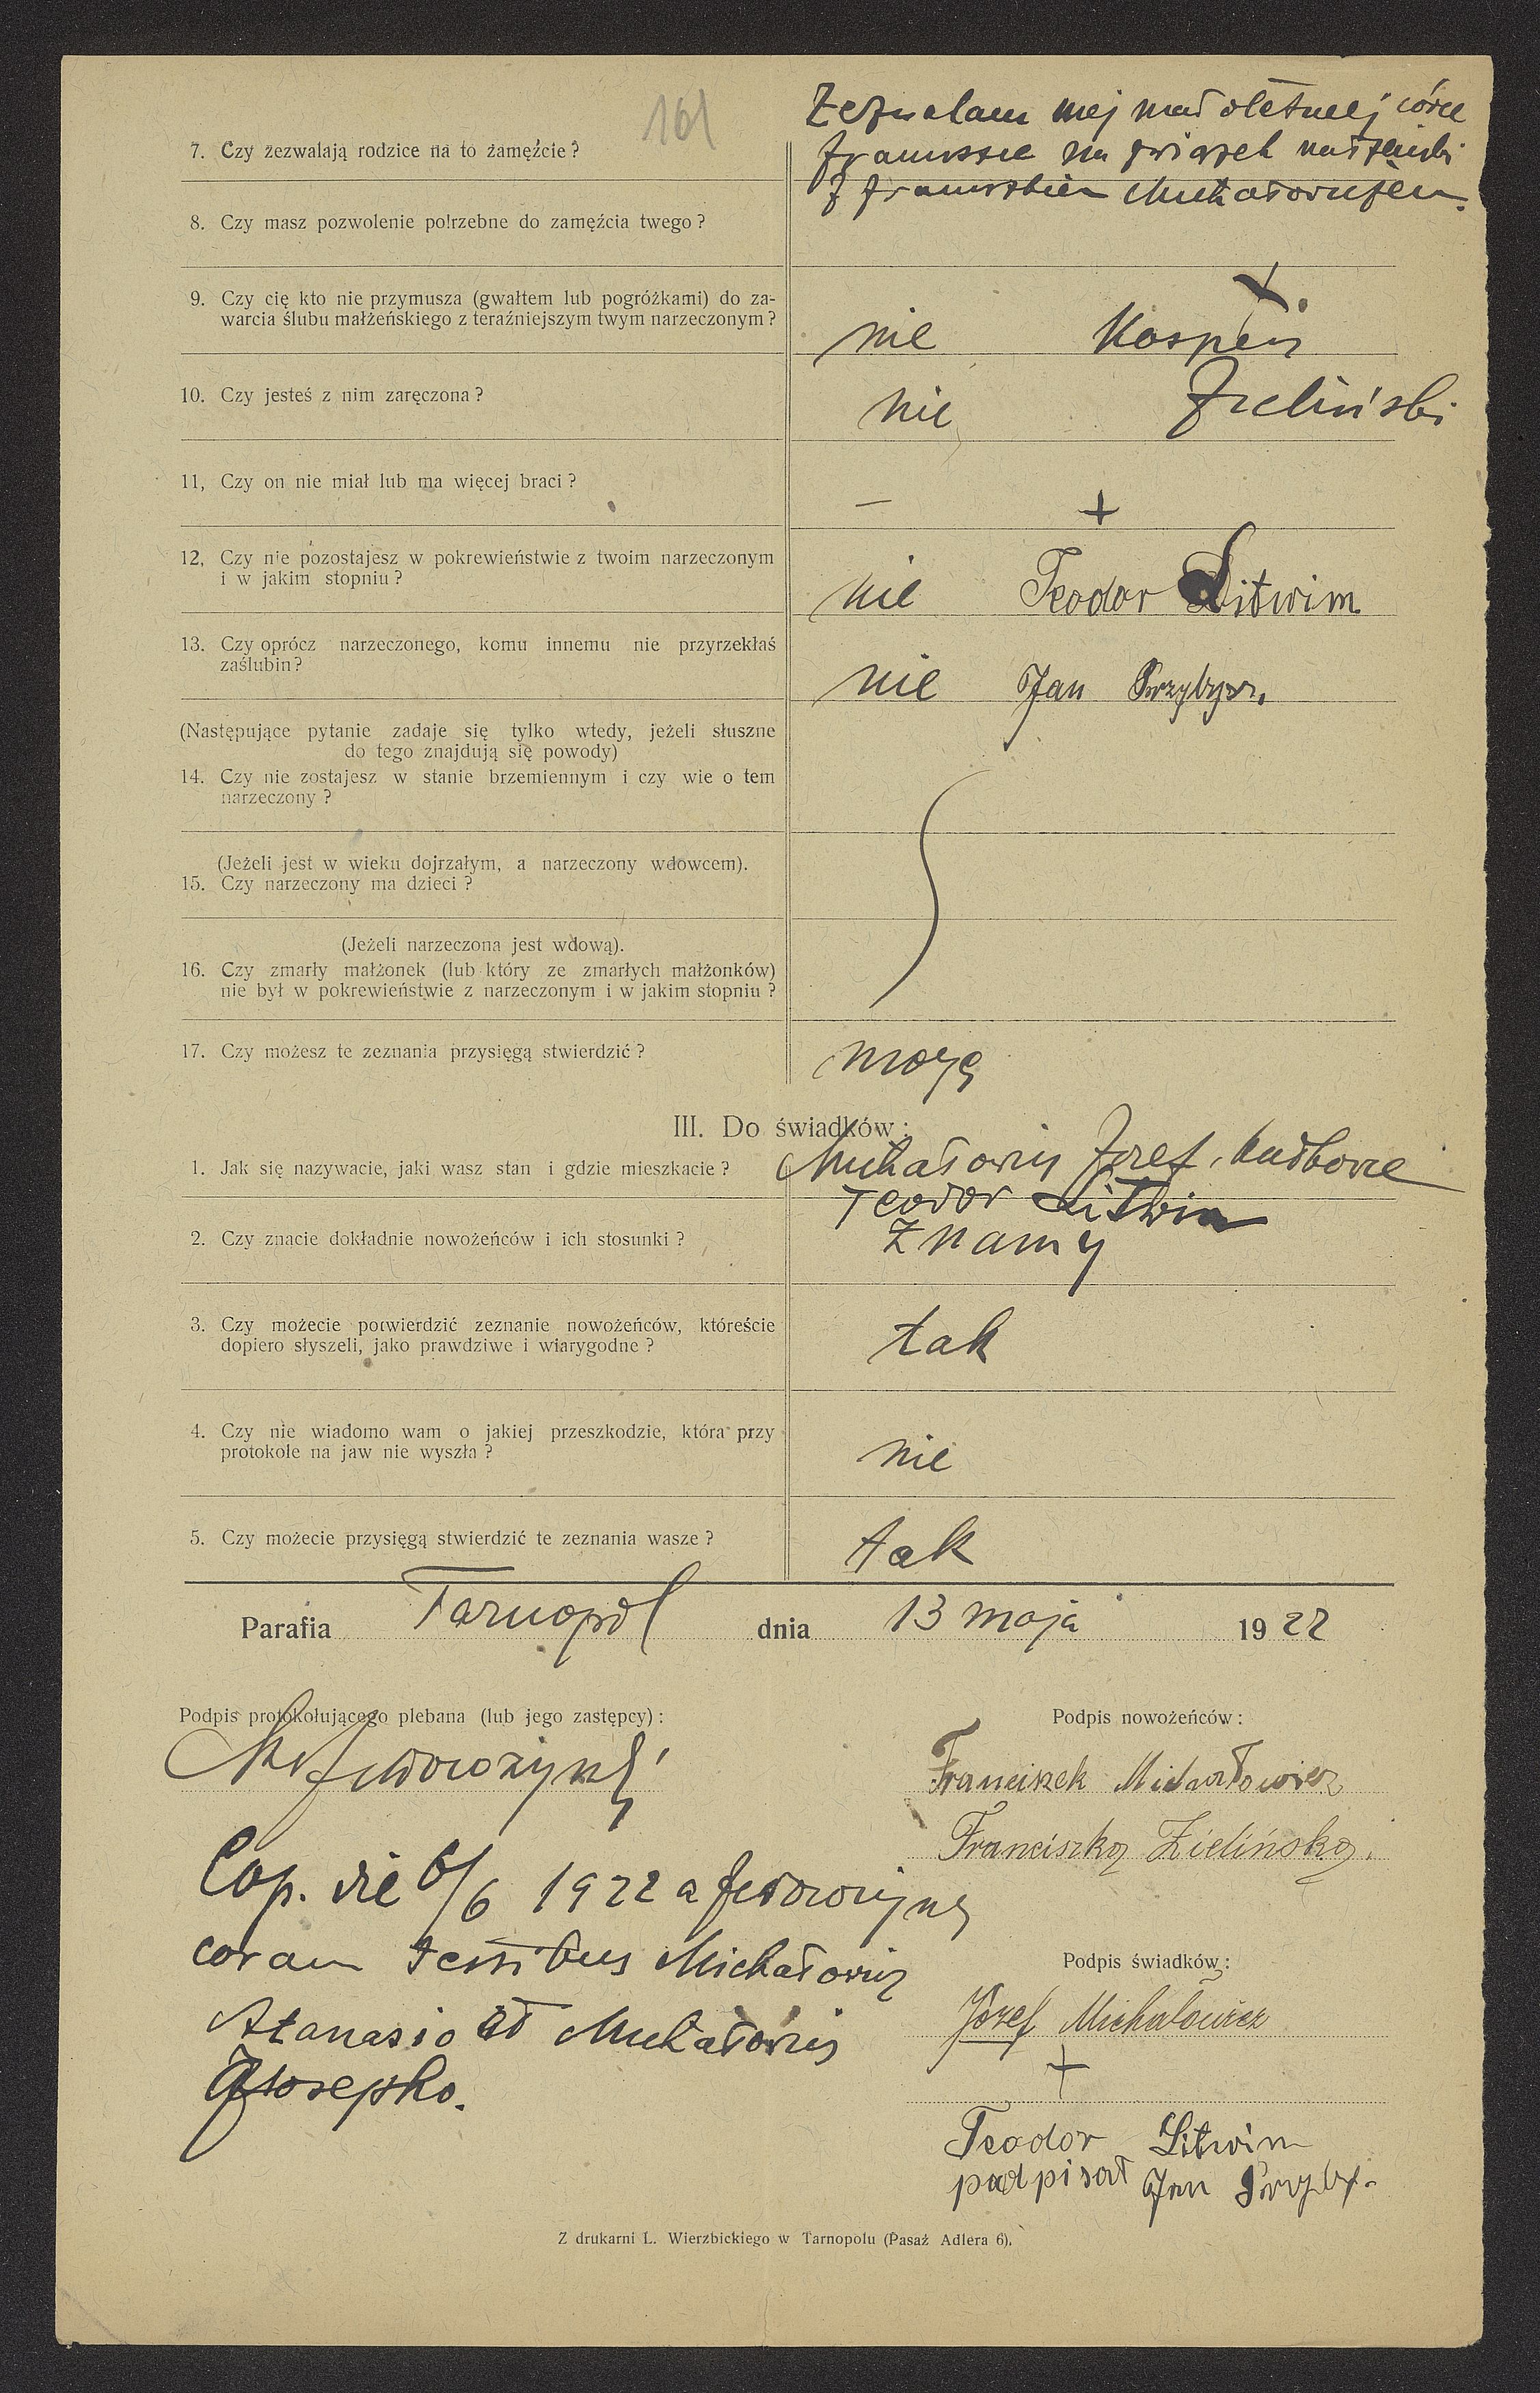 161
Zezwalam mej małoletniej córce
7. Czy zezwalają rodzice na to zamęźcie?
Franciszce na związek małżeński
z Franciszkiem Michałowiczem.
8. Czy masz pozwolenie potrzebne do zamęźcia twego?
9. Czy cię kto nie przymusza (gwałtem lub pogróżkami) do za-
warcia ślubu małżeńskiego z teraźniejszym twym narzeczonym?
nie
+
Kasper
10. Czy jesteś z nim zaręczona?
nie
Zieliński
11, Czy on nie miał lub ma więcej braci?
—
+
12, Czy nie pozostajesz w pokrewieństwie z twoim narzeczonym
i w jakim stopniu?
nie Teodor Litwin
13. Czy oprócz narzeczonego, komu innemu nie przyrzekłaś
zaślubin?
nie Jan
(Następujące pytanie zadaje się tylko wtedy, jeżeli słuszne
do tego znajdują się powody)
14. Czy nie zostajesz w stanie brzemiennym i czy wie o tem
narzeczony?
(Jeżeli jest w wieku dojrzałym, a narzeczony wdowcem).
15. Czy narzeczony ma dzieci?
(Jeżeli narzeczona jest wdową).
16. Czy zmarły małżonek (lub który ze zmarłych małżonków)
nie był w pokrewieństwie z narzeczonym i w jakim stopniu?
17. Czy możesz te zeznania przysięgą stwierdzić?
mogę
III. Do świadków:
1. Jak się nazywacie, jaki wasz stan i gdzie mieszkacie?
Michałowicz Józef,
Teodor Litwin
2. Czy znacie dokładnie nowożeńców i ich stosunki?
znamy
3. Czy możecie potwierdzić zeznanie nowożeńców, któreście
dopiero słyszeli, jako prawdziwe i wiarygodne?
tak
4. Czy nie wiadomo wam o jakiej przeszkodzie, która przy
protokole na jaw nie wyszła?
nie
5. Czy możecie przysięgą stwierdzić te zeznania wasze?
tak
Parafia Tarnopol dnia 13 maja 1922
Podpis protokołującego plebana (lub jego zastępcy):
Podpis nowożeńców:
Franciszek Michałowicz
Franciszka Zielińska.
Cop. die 6/6 1922 a
coram testibus Michałowicz
Atanasio et Michałowicz
Josepho.
Podpis świadków:
Józef Michałowicz
+
Teodor Litwin
podpisał Jan
Z drukarni L. Wierzbickiego w Tarnopolu (Pasaż Adlera 6),